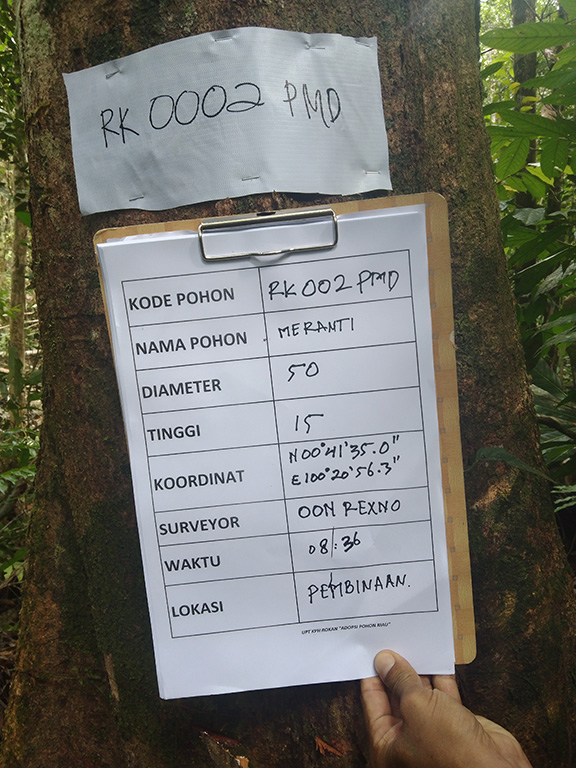 RK 0002 PMD
KODE POHON RK 002 PMD
NAMA POHON MERANTI
DIAMETER 50
TINGGI 15
KOORDINAT N 00°41'35.0"
E 100°20'56.3"
SURVEYOR OON REXNO
WAKTU 08:36
LOKASI PEMBINAAN.
UPT KPH ROKAN "ADOPSI POHON RIAU"